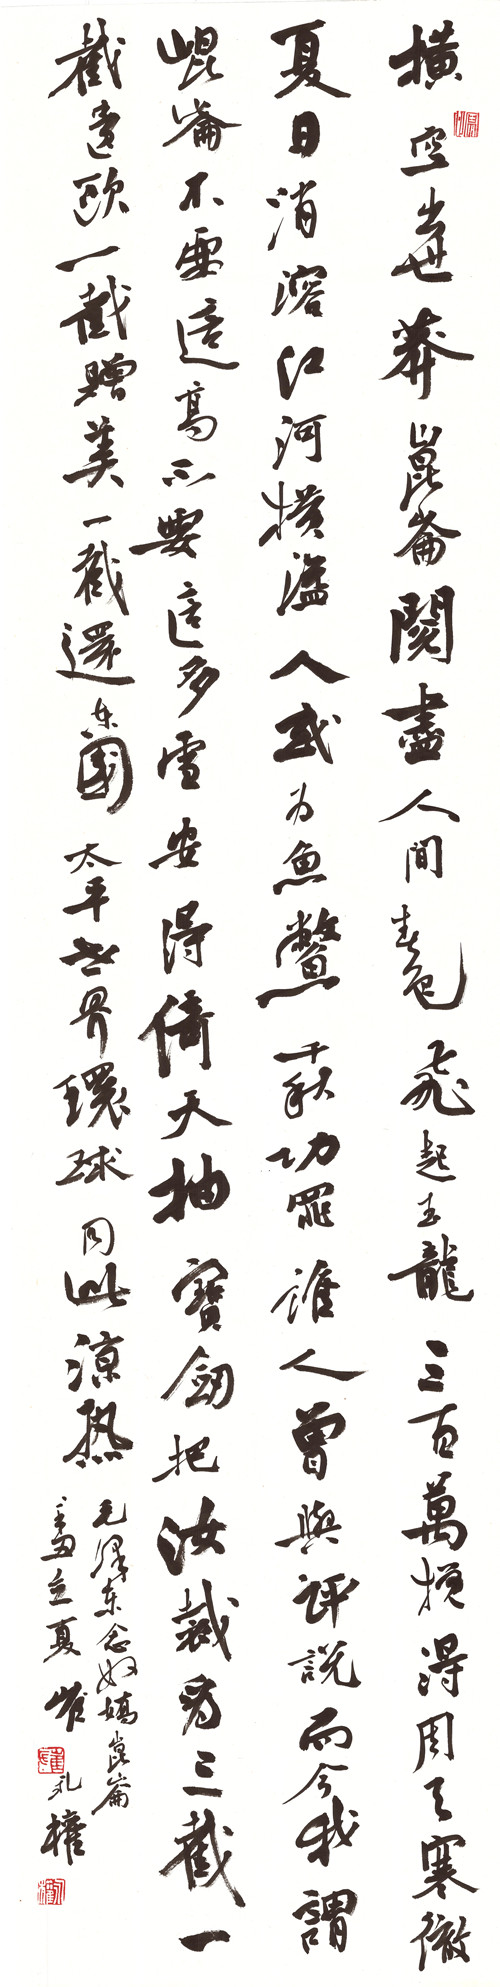 橫空出世莽崑崙閱盡人間春色飛起玉龍三百萬攪得周天寒徹
夏日消溶江河橫溢人或为魚鱉千秋功罪誰人曾與評說而今我謂
崐崙不要這高不要這多雪安得倚天抽寶劍把汝裁為三截一
截遺歐一截贈美一截還東國太平世界環球同此涼熱
毛澤東念奴嬌崑崙
立夏崔礼權